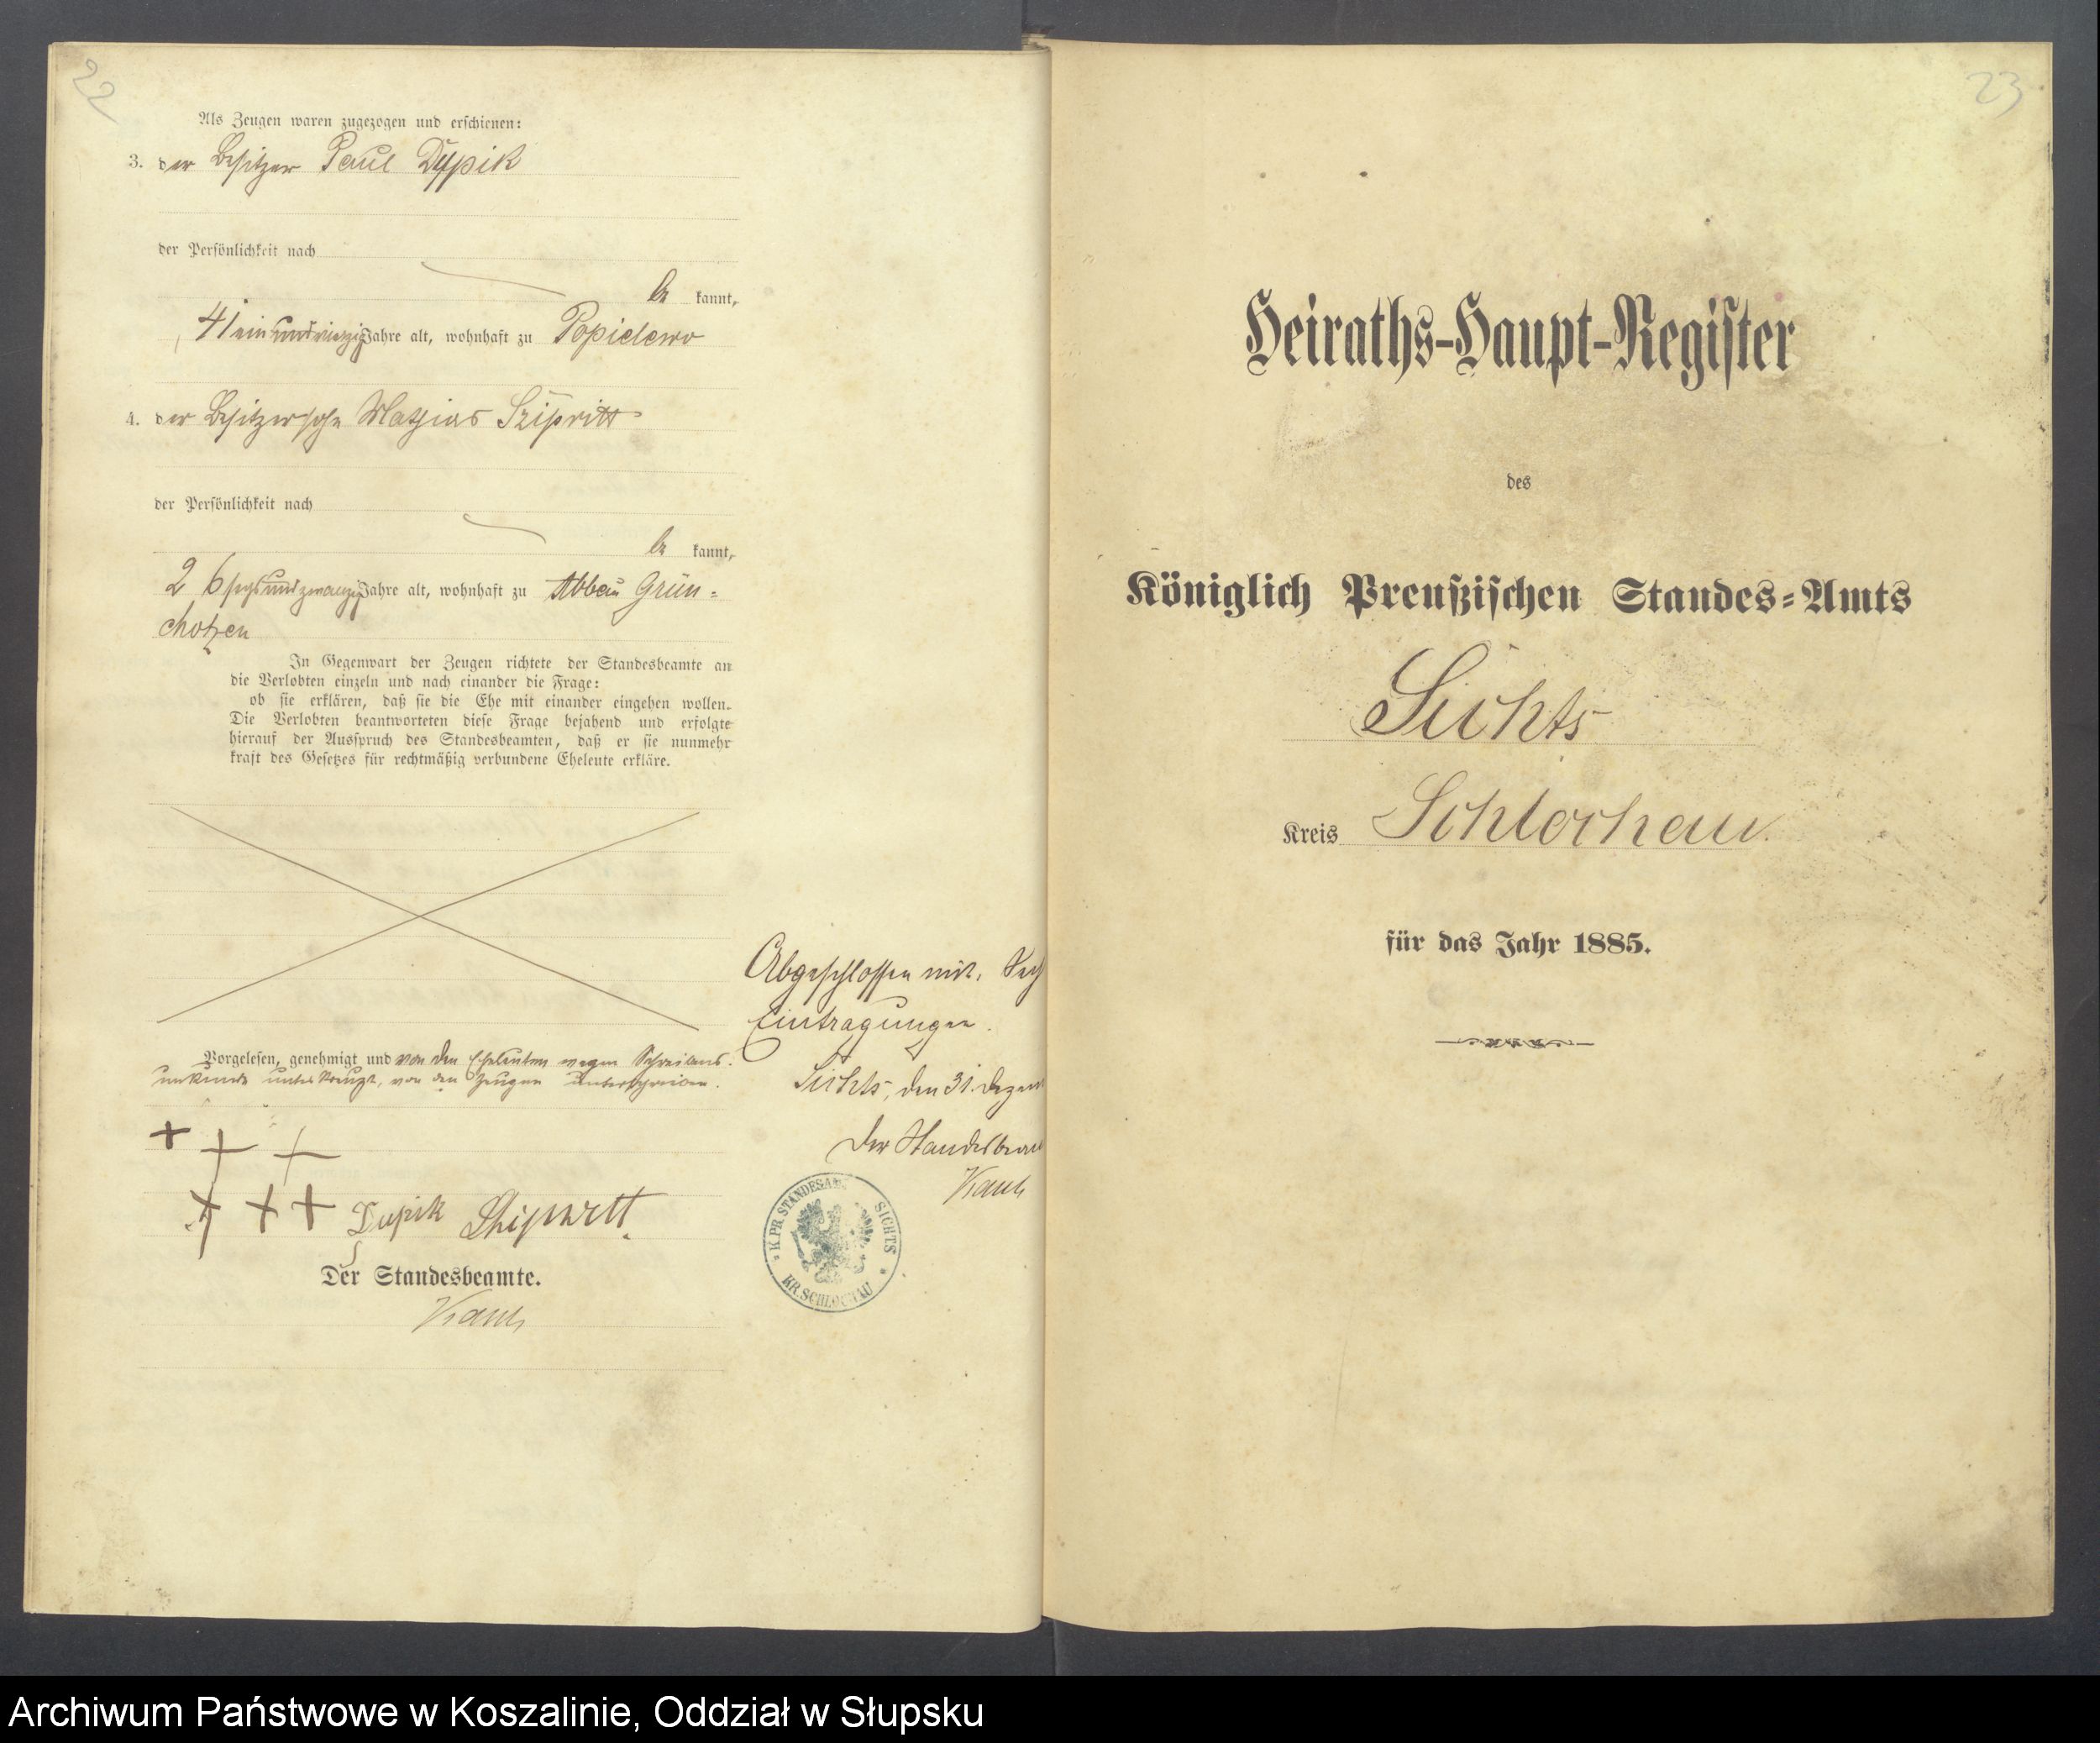 22
Als Zeugen waren zugezogen und erschienen:
3. der Besitzer Paul Dÿpik
der Persönlichkeit nach
be kannt,
41 ein und vierzig Jahre alt, wohnhaft zu Popielewo
4. der Besitzersohn Mathias
der Persönlichkeit nach
be kannt,
26 sechsundzwanzig Jahre alt, wohnhaft zu Abbau Grün=
chotzen
In Gegenwart der Zeugen richtete der Standesbeamte an
die Verlobten einzeln und nach einander die Frage:
ob sie erklären, daß sie die Ehe mit einander eingehen wollen.
Die Verlobten beantworteten diese Frage bejahend und erfolgte
hierauf der Ausspruch des Standesbeamten, daß er sie nunmehr
kraft des Gesetzes für rechtmäßig verbundene Eheleute erkläre.
Vorgelesen, genehmigt und von den Eheleuten wegen Schreibens-
unkunde unterkreuzt, von den Zeugen unterschrieben.
+ + +
+ + + Dupik
Der Standesbeamte.
Abgeschlossen mit
Eintragungen.
Sichts, den 31. Dezem
Der Standesbeam
K. PR. STANDESAMT SICHTS
KR. SCHLOCHAU
23
Heiraths-Haupt-Register
des
Königlich Preußischen Standes-Amts
Sichts
Kreis Schlochau.
für das Jahr 1885.
Archiwum Państwowe w Koszalinie, Oddział w Słupsku